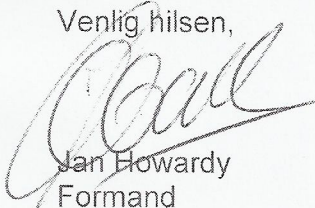 Venlig hilsen,
Jan Howardy
Formand